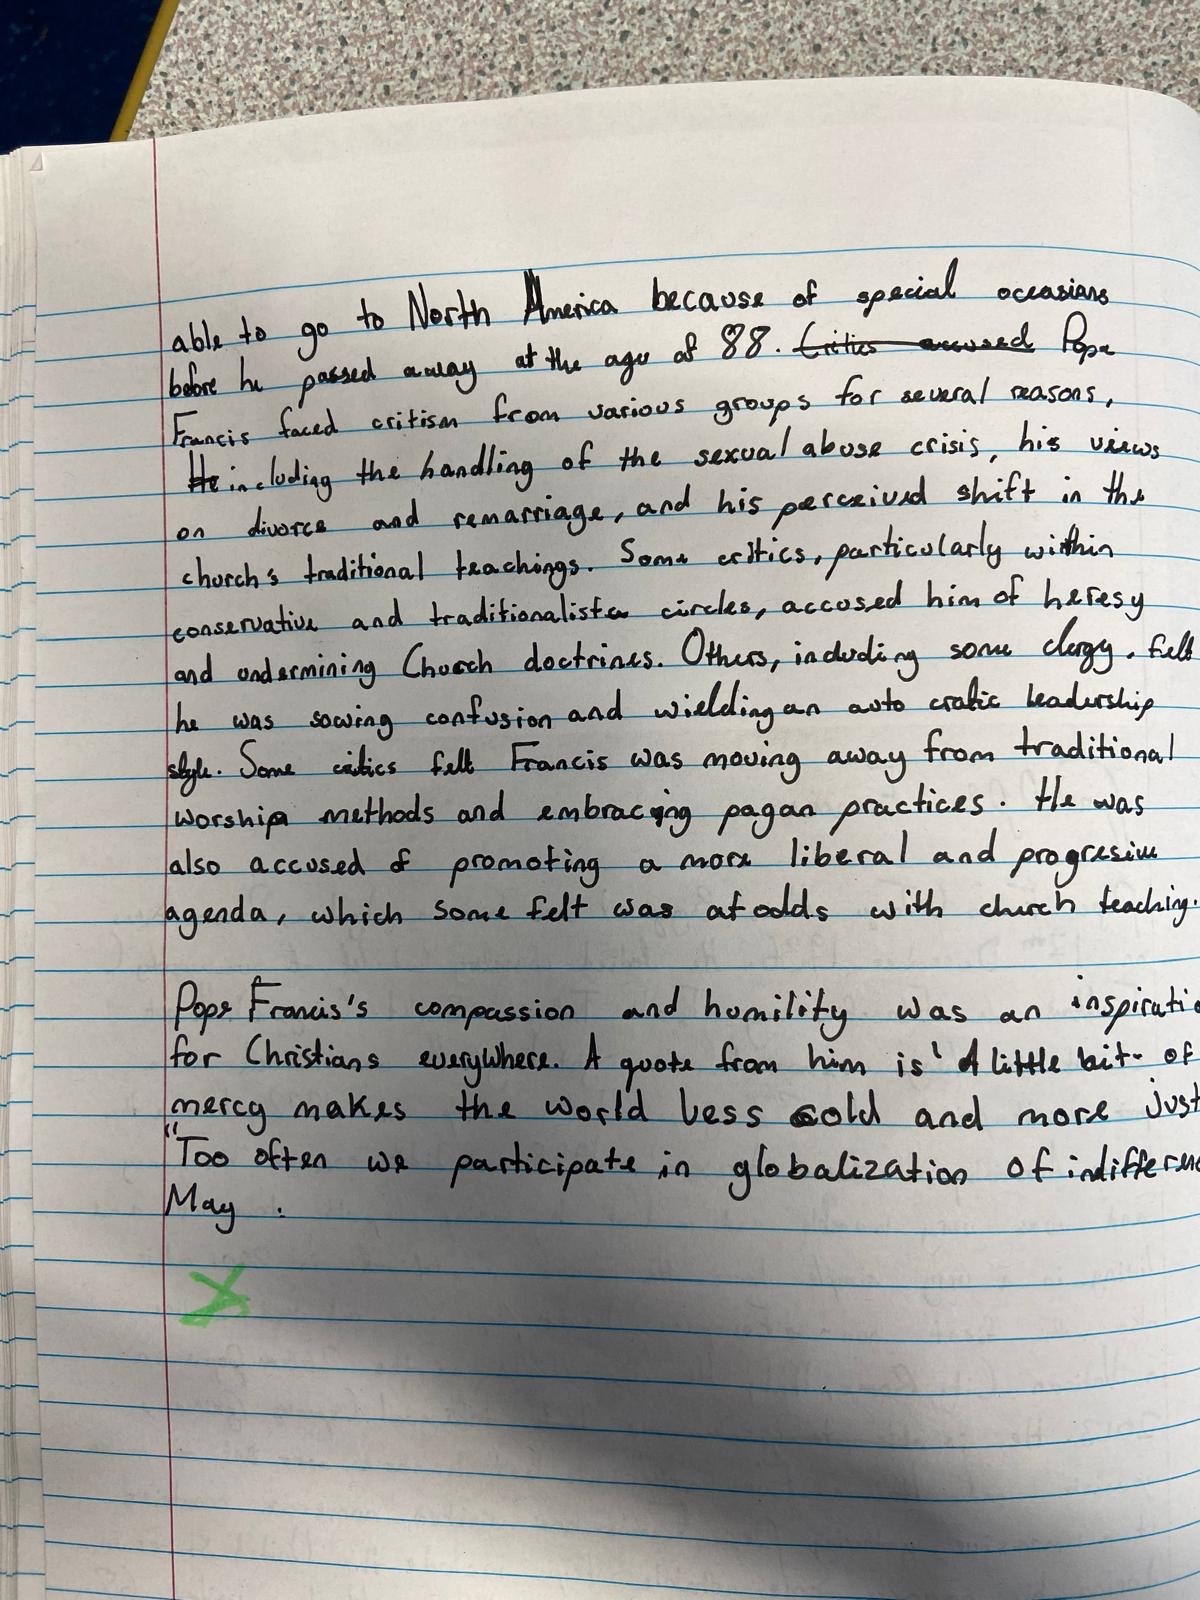 able to go to North America because of special occasians
before he passed away at the age of 88. Critics accused Pope
Francis faced critism from various groups for several reasons,
He including the handling of the sexual abuse crisis, his views
on divorce and remarriage, and his perceived shift in the
church's traditional teachings. Some critics, particularly within
conservative and traditionalist circles, accused him of heresy
and undermining Church doctrines. Others, including some clergy, felt
he was sowing confusion and wielding an auto cratic leadership
style. Some critics felt Francis was moving away from traditional
worship methods and embracing pagan practices. He was
also accused of promoting a more liberal and progresive
agenda, which some felt was at odds with church teaching.
Pope Francis's compassion and humility was an inspiratio
for Christians everywhere. A quote from him is ' A little bit of
mercy makes the world less cold and more just
"Too often we participate in globalization of indifferenc
May .